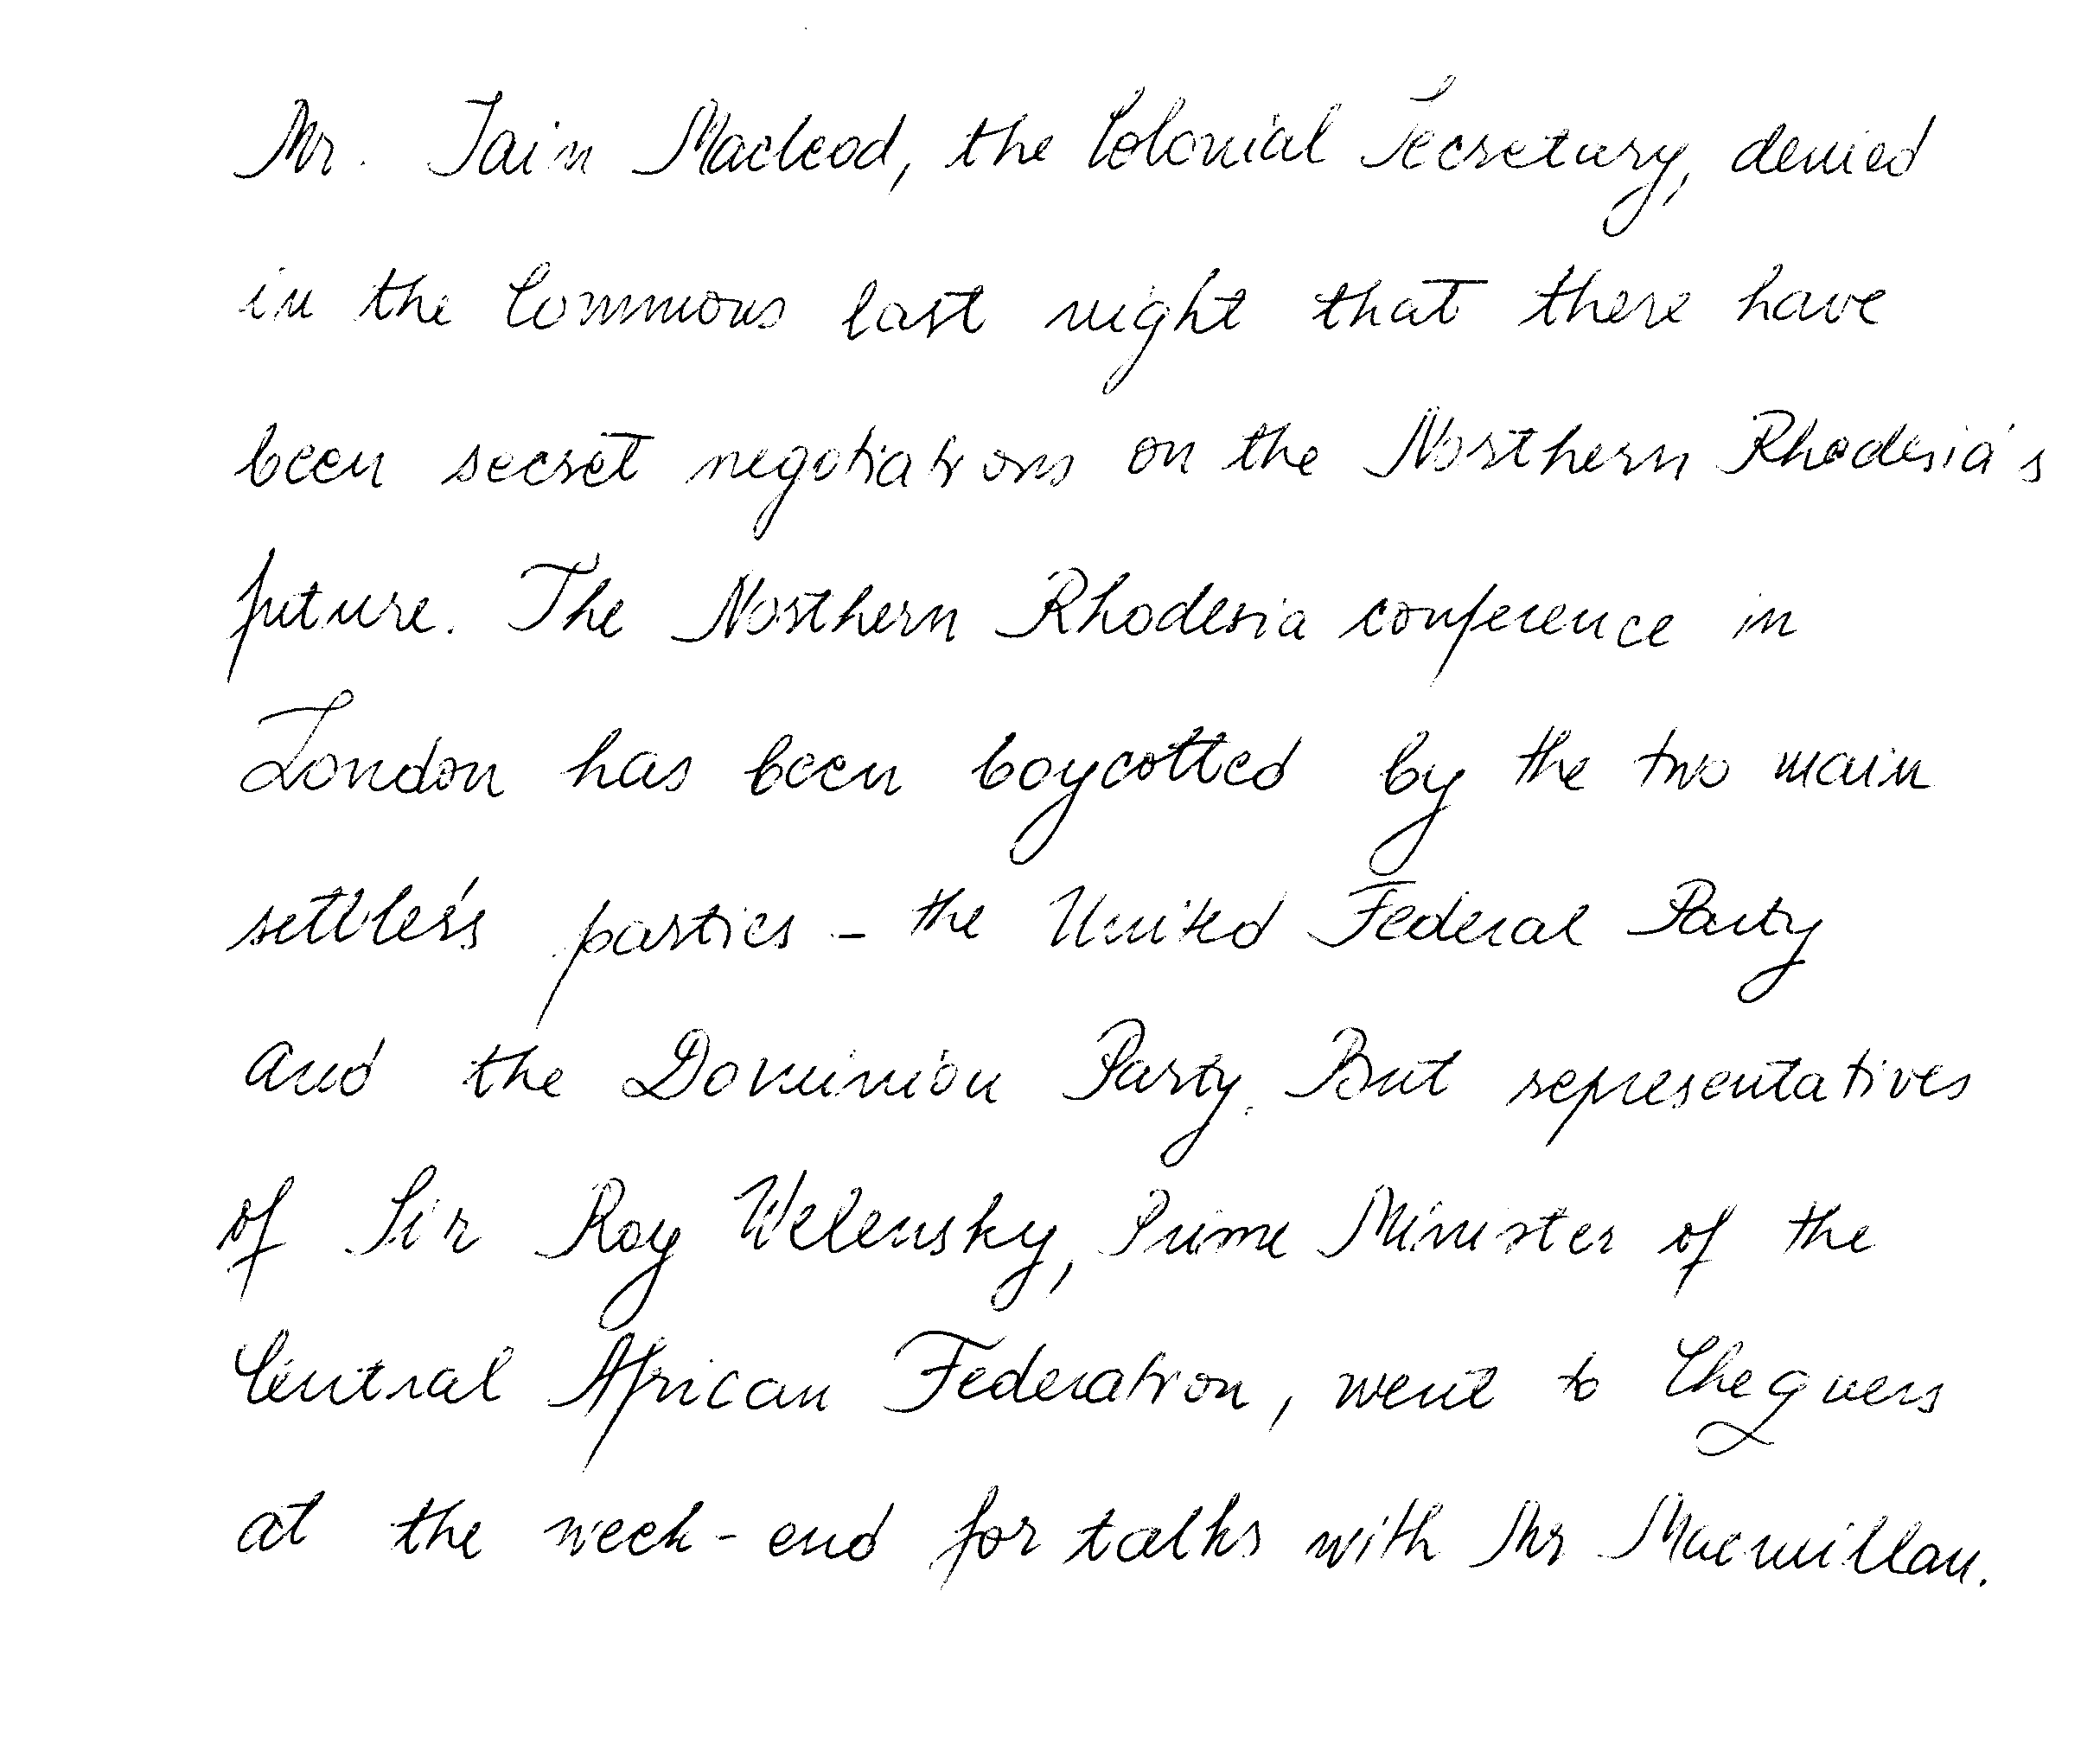 Mr. Iain Macleod, the Colonial Secretary, denied
in the Commons last night that there have
been secret negotiations on the Northern Rhodesia's
future. The Northern Rhodesia conference in
London has been boycotted by the two main
settler's parties - the United Federal Party
and the Dominion Party. But representatives
of Sir Roy Welensky, Prime Minister of the
Central African Federation, went to Chequers
at the week-end for talks with Mr Macmillan.